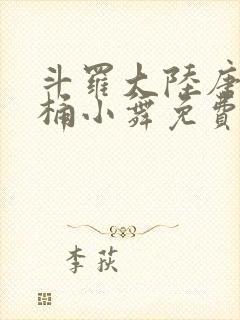 斗羅大陸唐
桶小舞免費
李荻